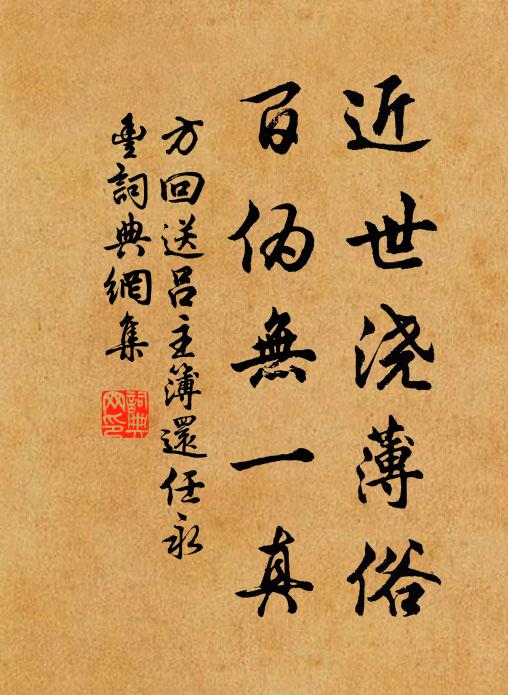 近世浇薄俗
百伪無一真
方回送吕主簿還任永
豊詞典網集
詞典
网印